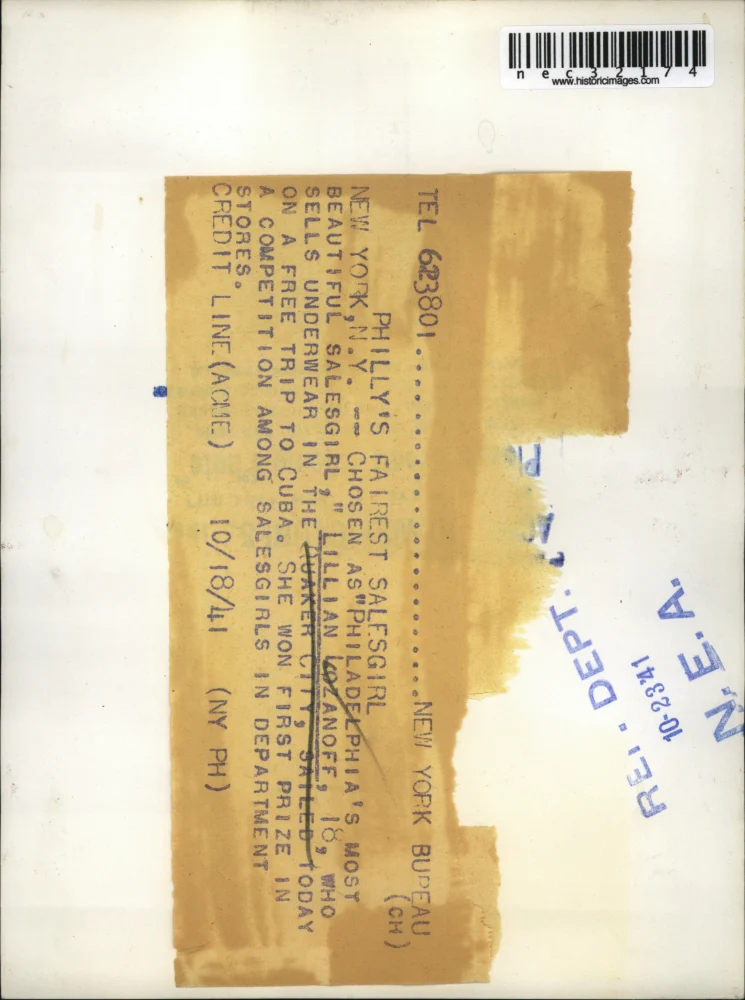 nec32174
www.historicimages.com
TEL 623801......................NEW YORK BUREAU
(CH)
PHILLY'S FAIREST SALESGIRL
NEW YORK, N.Y. -- CHOSEN AS "PHILADELPHIA'S MOST
BEAUTIFUL SALESGIRL," LILLIAN LOZANOFF, 18, WHO
SELLS UNDERWEAR IN THE QUAKER CITY, SAILED TODAY
ON A FREE TRIP TO CUBA. SHE WON FIRST PRIZE IN
A COMPETITION AMONG SALESGIRLS IN DEPARTMENT
STORES.
CREDIT LINE (ACME) 10/18/41 (NY PH)
REF. DEPT.
10-2341
N.E.A.